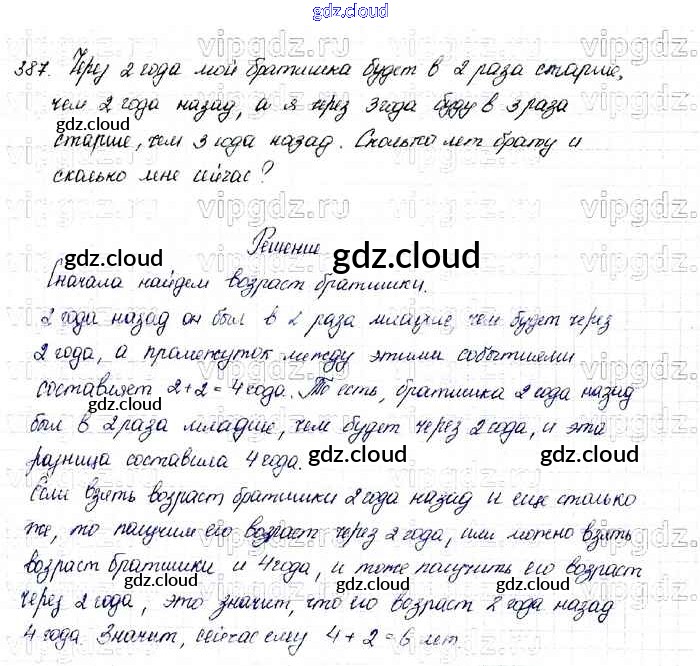 gdz.cloud
387. Через 2 года мой братишка будет в 2 раза старше,
чем 2 года назад, а я через 3 года буду в 3 раза
старше, чем 3 года назад. Сколько лет брату и
сколько мне сейчас?
Решение
Сначала найдем возраст братишки.
2 года назад он был в 2 раза младше, чем будет через
2 года, а промежуток между этими событиями
составляет 2+2=4 года. То есть, братишка 2 года назад
был в 2 раза младше, чем будет через 2 года, и эта
разница составила 4 года.
Если взять возраст братишки 2 года назад и еще столько
же, то получим его возраст через 2 года, или можно взять
возраст братишки и 4 года, и тоже получить его возраст
через 2 года, это значит, что его возраст 2 года назад
4 года. Значит, сейчас ему 4+2=6 лет.